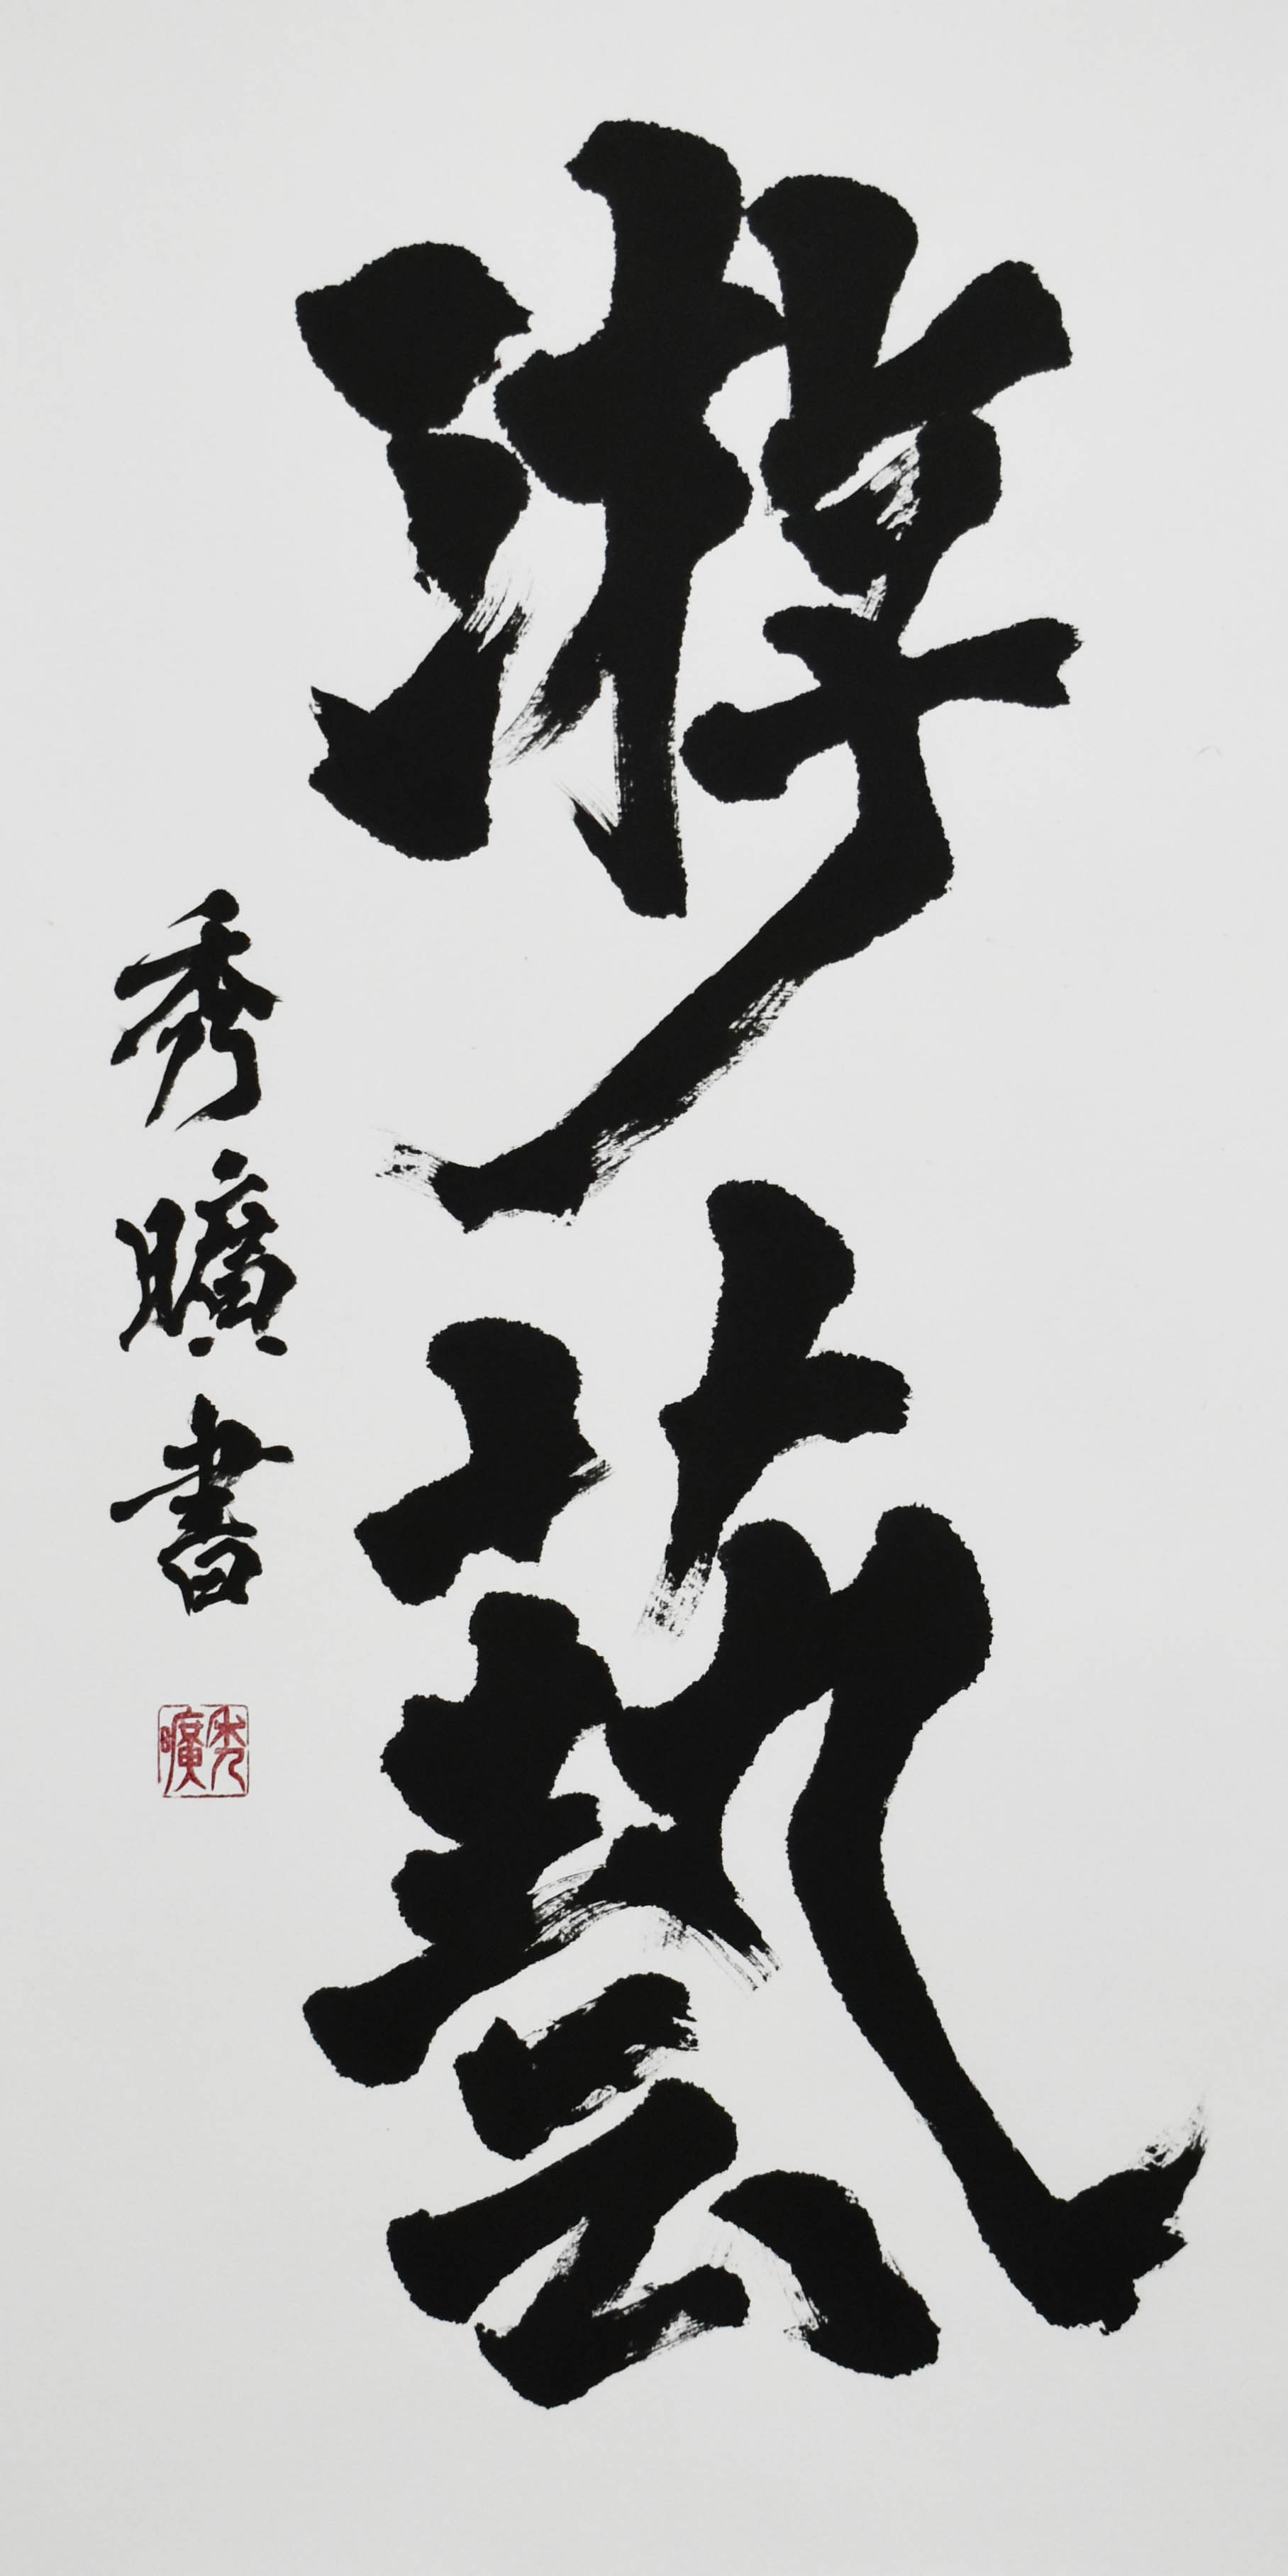 游藝
秀曠書
秀曠